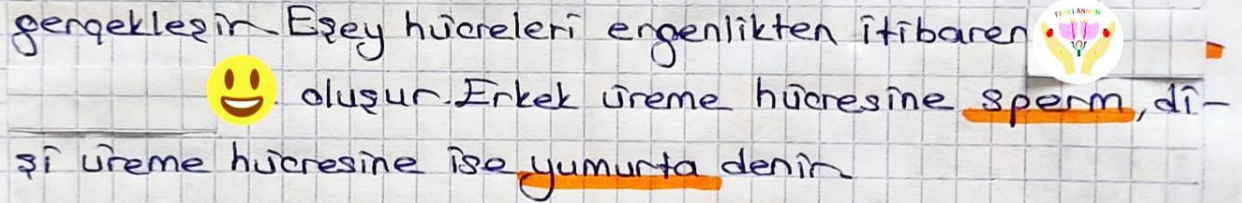 gerçekleşir Eşey hücreleri ergenlikten itibaren
oluşur. Erkek üreme hücresine sperm, di-
şi üreme hücresine ise yumurta denir